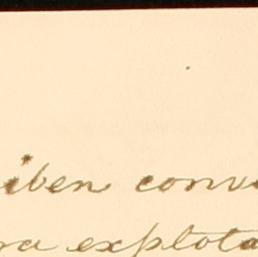 iben conv
ra explota